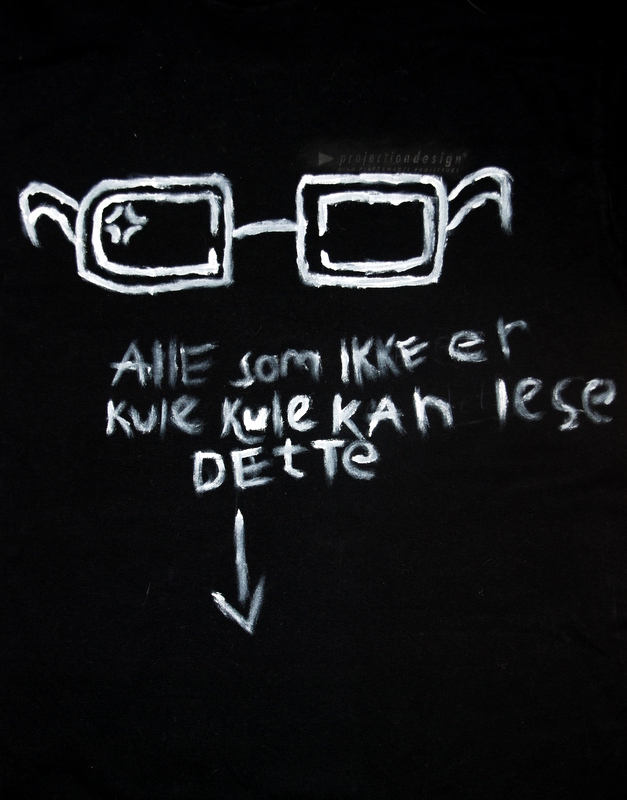 projectiondesign
AllE som IKKE er
kule kule KAn lese
DEtTe